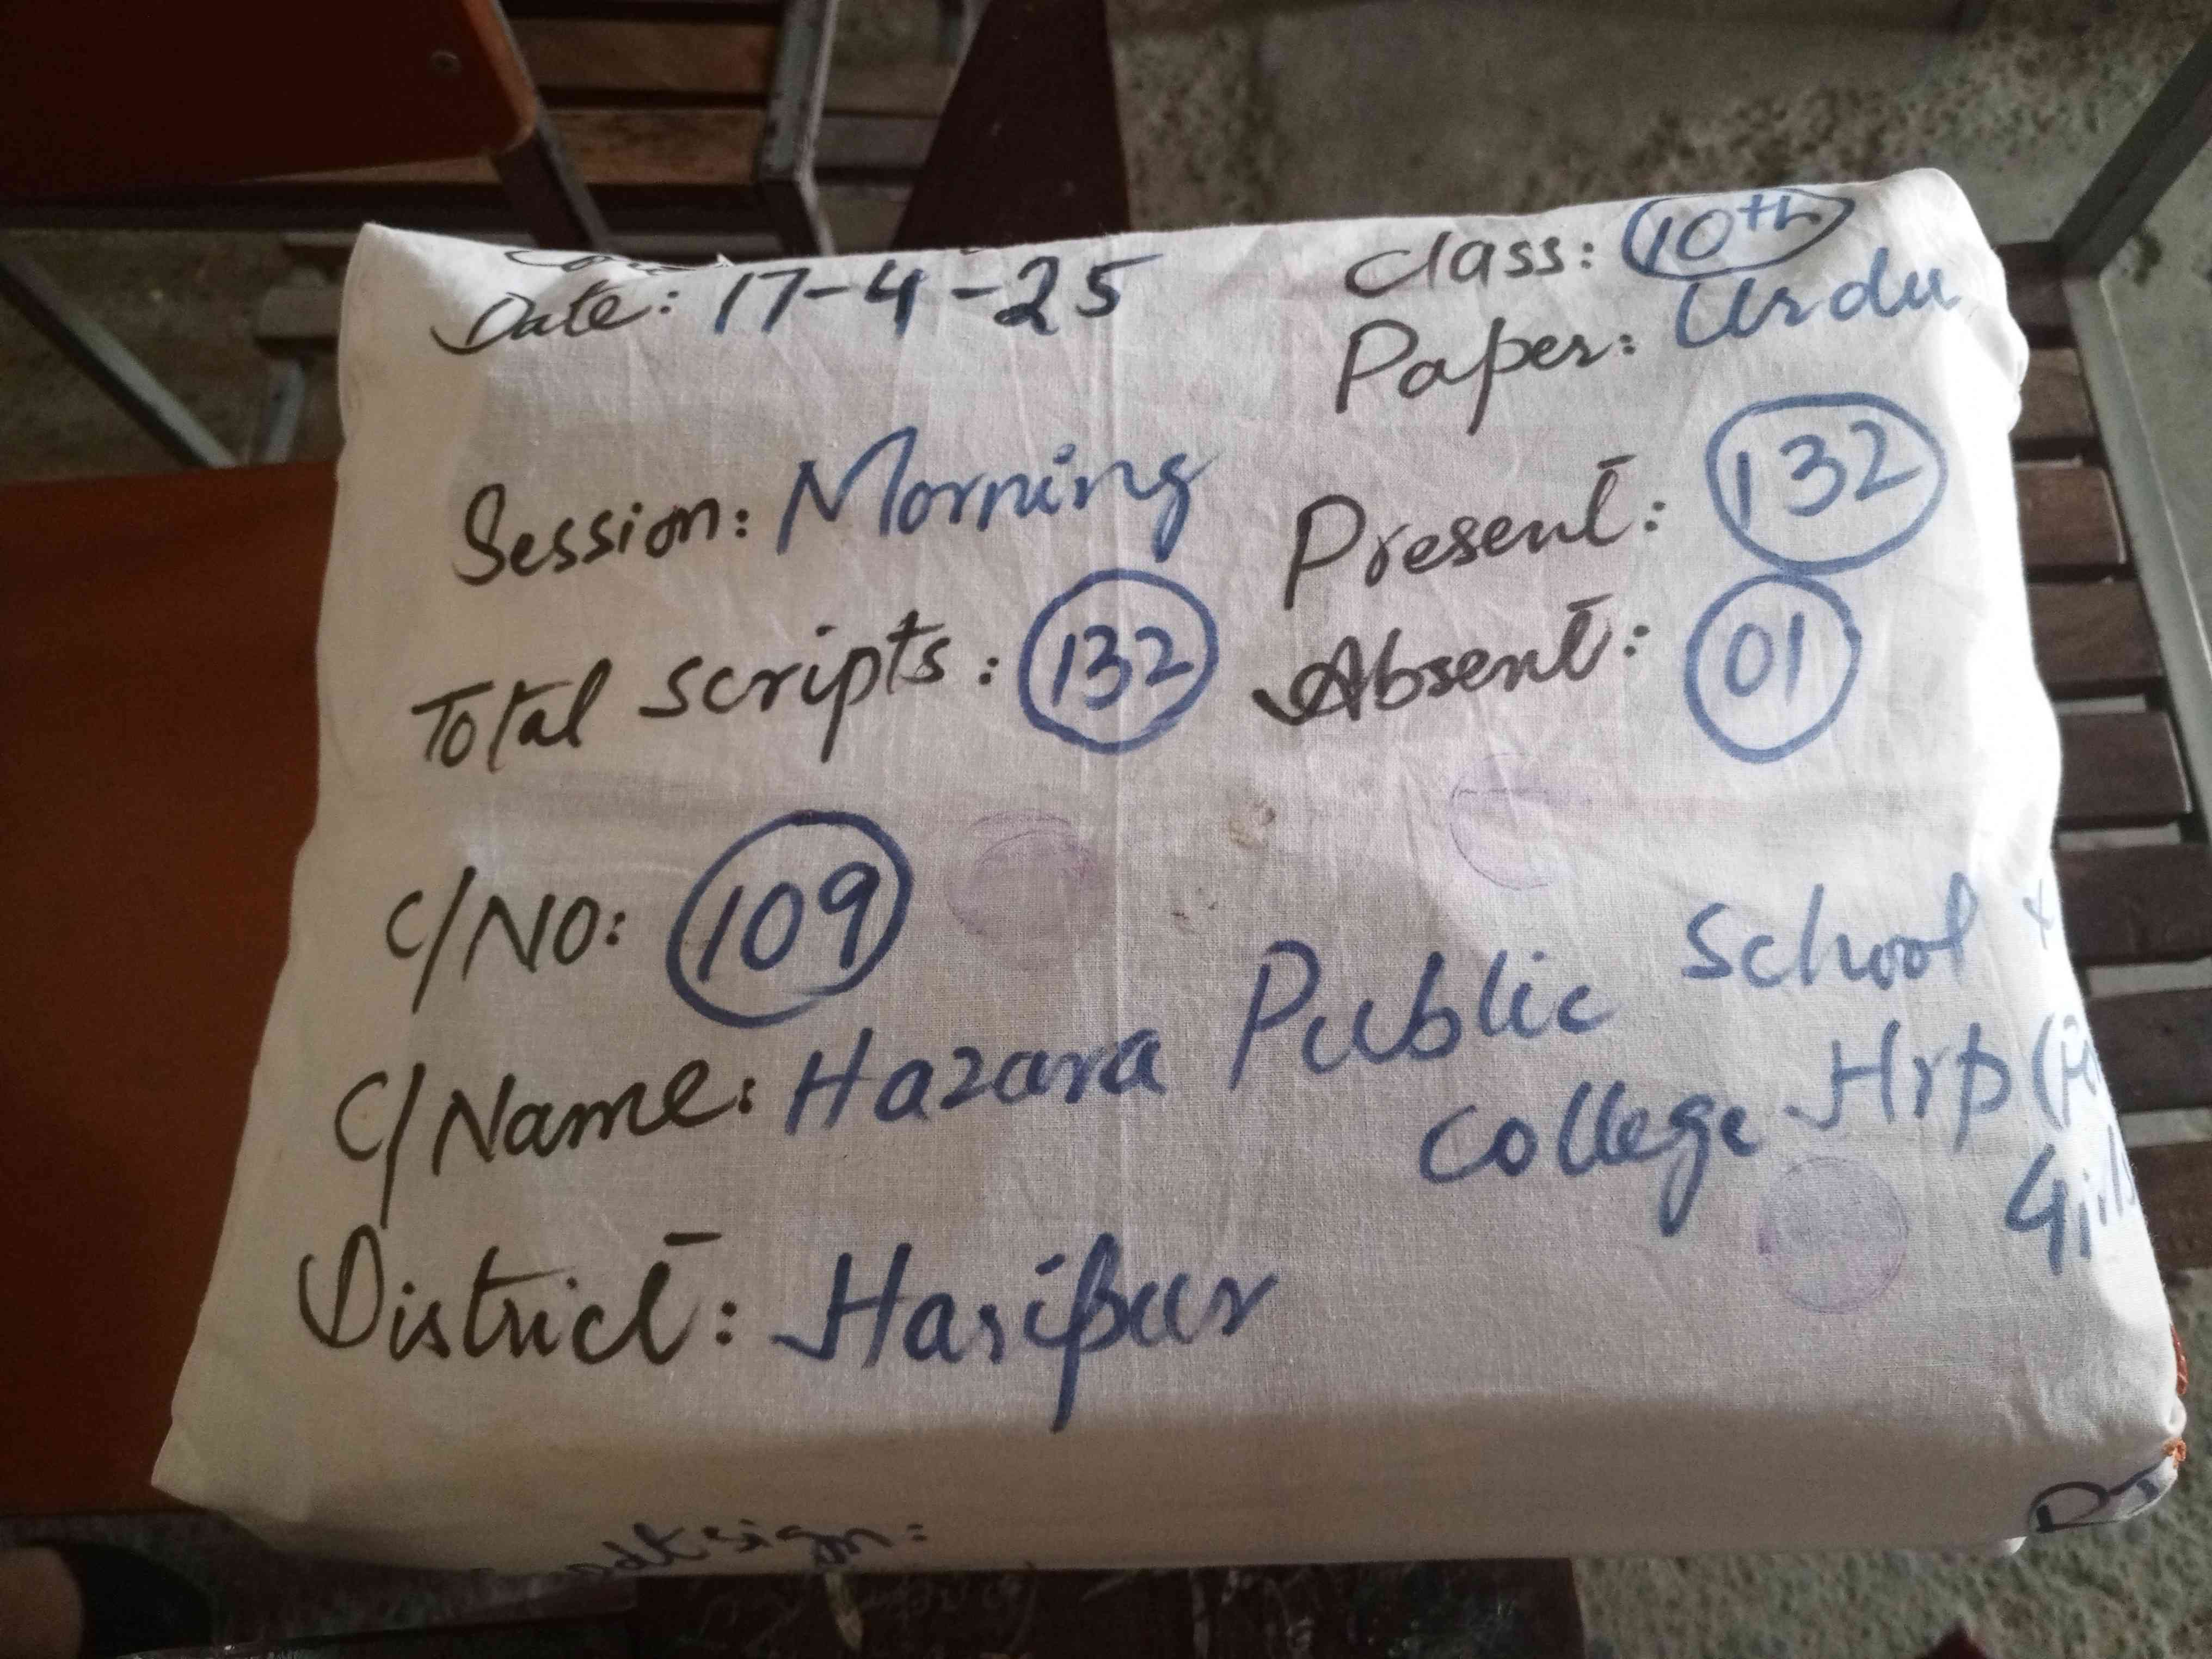 Date: 17-4-25
Class: 10th
Paper: Urdu
Session: Morning
Present: 132
Total scripts: 132
Absent: 01
C/NO: 109
C/Name: Hazara Public School
College Hrp
Girls
District: Haripur
sign: